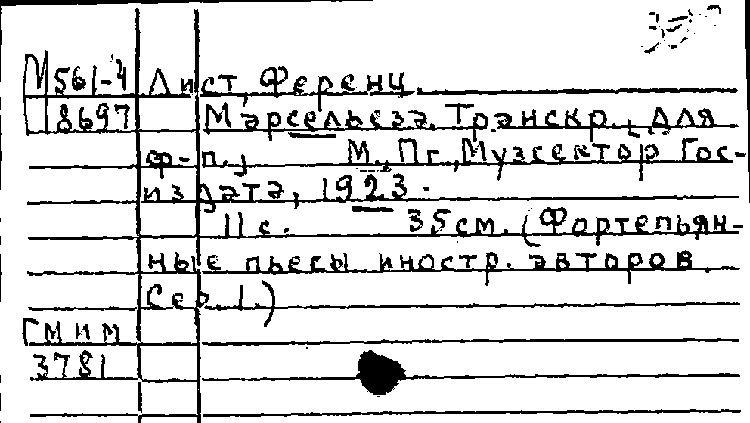 М 561-4 Лист, Ференц.
8697 Марсельеза. Транскр. для
ф-п., М., Пг., Музсектор Гос-
издата, 1923.
11 с. 35 см. (Фортепьян-
ные пьесы иностр. авторов.
Сер. 1.)
ГМИМ
3781